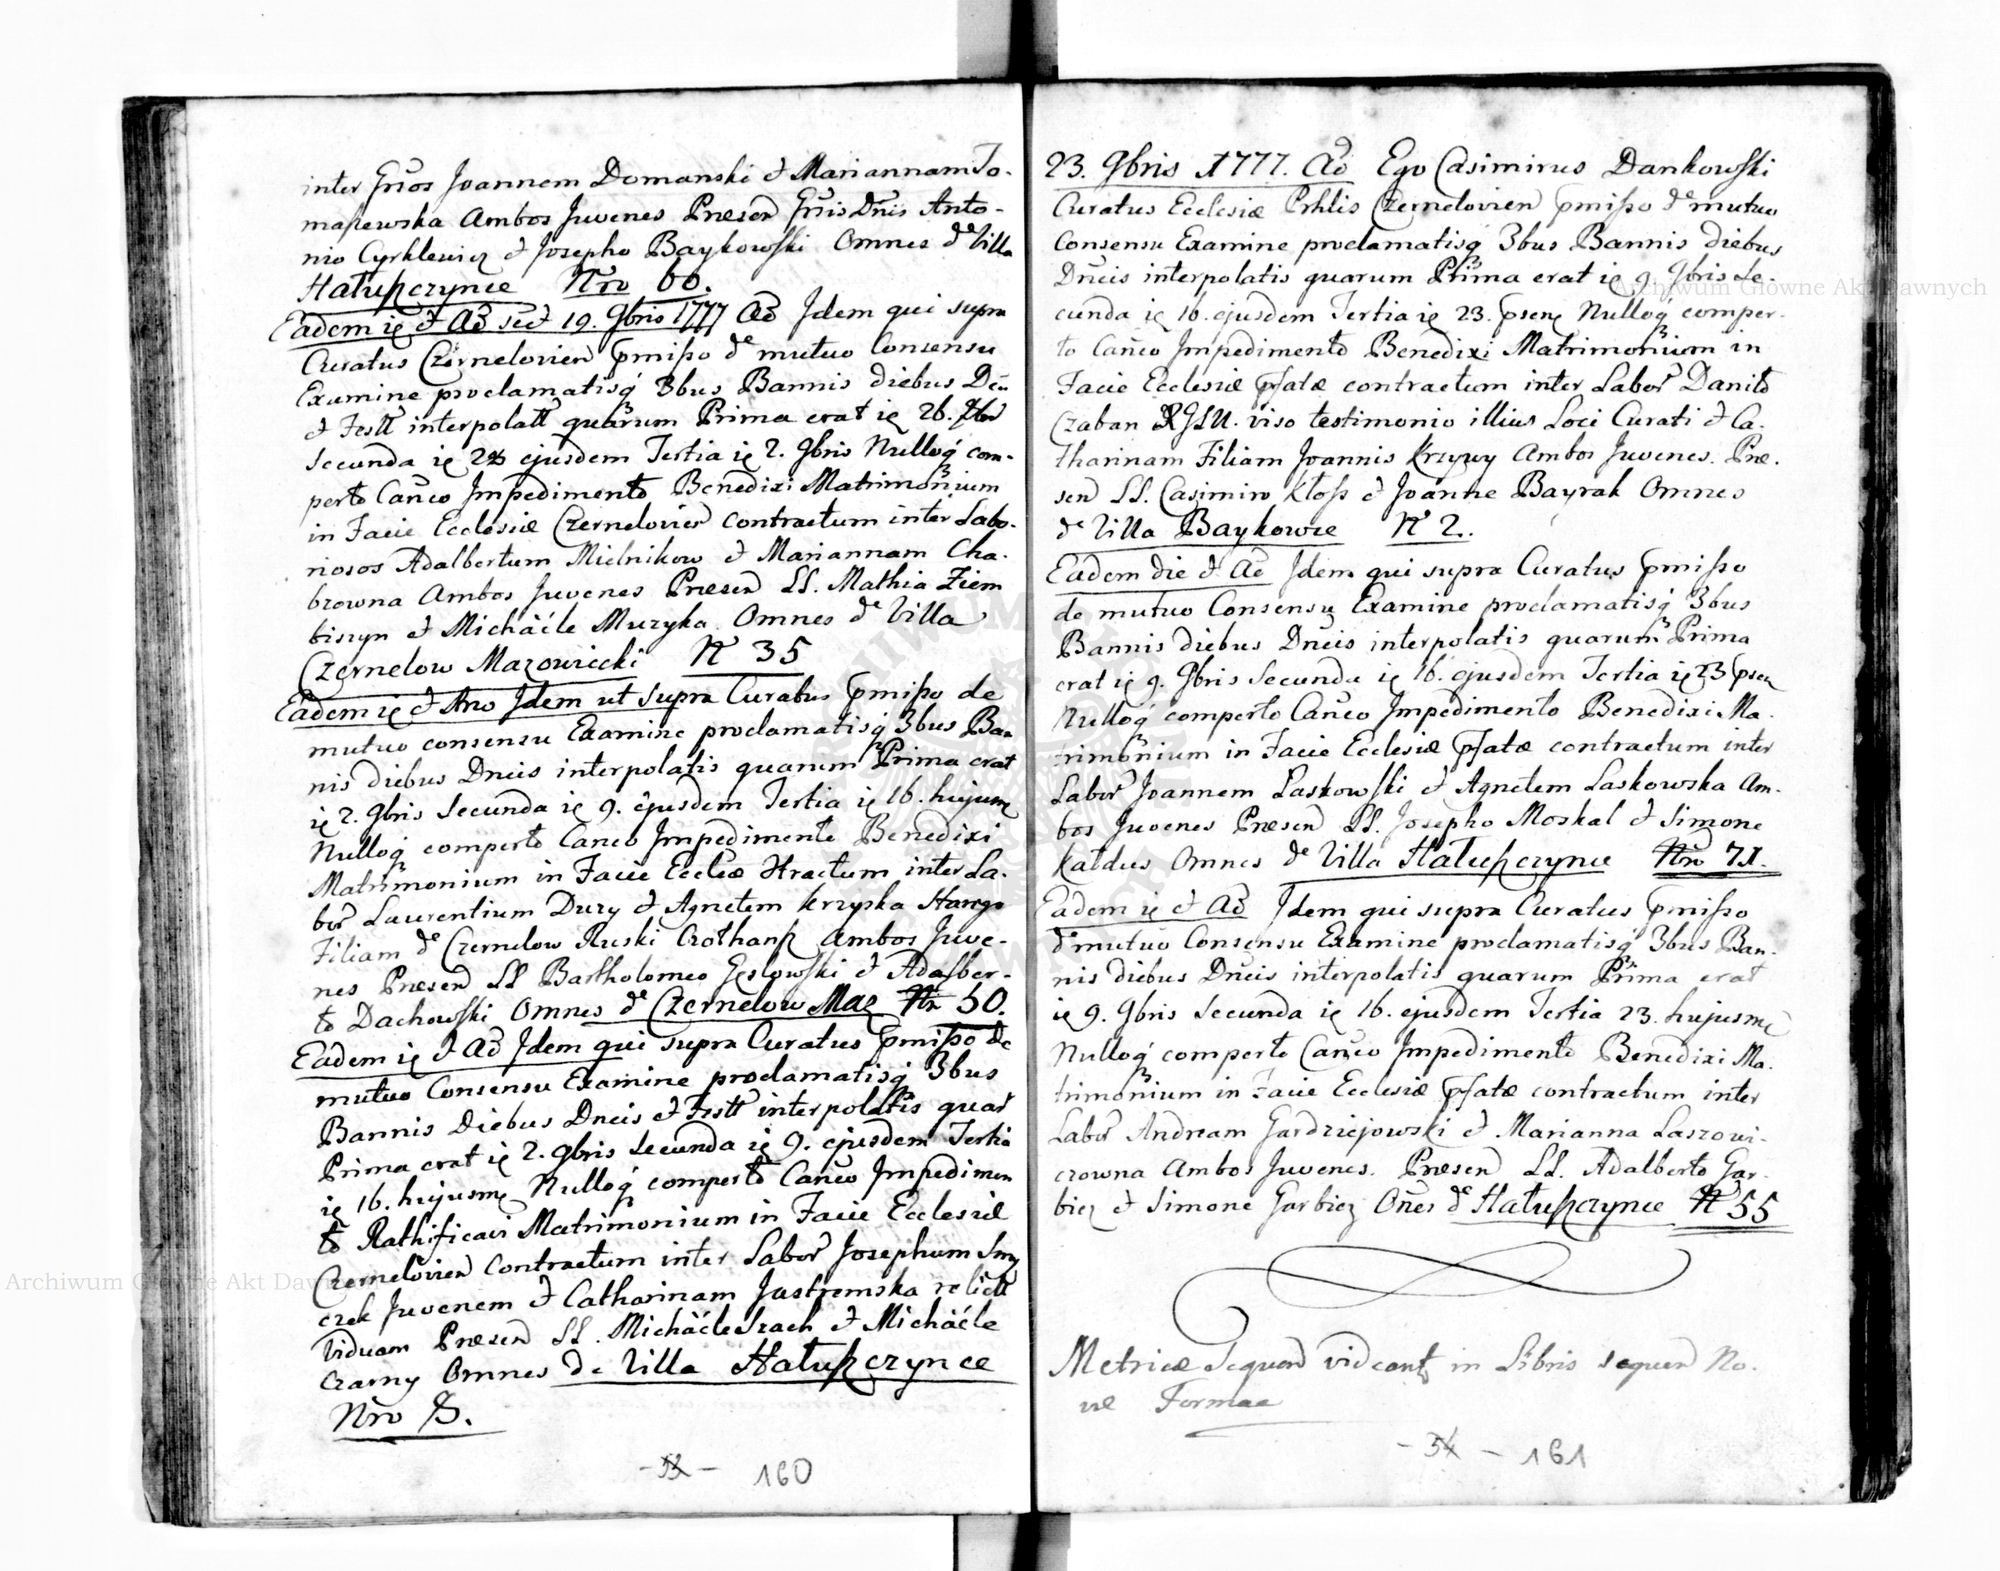 inter Gnos Joannem Domanski et Mariannam To-
maszewska Ambos Juvenes Præsen Gnsis Dnis Anto-
nio Cyrklewicz et Josepho Baykowski Omnes de Villa
Hałuszczynce Nro 60.
Eadem ię et Ao sed 19. 9bris 1777 Ao Idem qui supra
Curatus Czernelovien pmisso de mutuo Consensu
Examine proclamatisq 3bus Bannis diebus Dcu
et Festt interpolatt quarum Prima erat ię 26. Xbr
Secunda ię 28 ejusdem Tertia ię 2. 9bris Nulloq com-
perto Canco Impedimento Benedixi Matrimonium
in Facie Ecclesiæ Czernelovien contractum inter Labo-
riosos Adalbertum Mielnikow et Mariannam Cha-
browna Ambos Juvenes Præsen LL. Mathia Ziem
biszyn et Michäéle Muzyka Omnes de Villa
Czernelow Mazowiecki N 35
Eadem ię et Ano Idem ut supra Curatus pmisso de
mutuo consensu Examine proclamatisq 3bus Ban
nis diebus Dncis interpolatis quarum Prima erat
ię 2. 9bris Secunda ię 9. ejusdem Tertia ię 16. hujusmę
Nulloq comperto Canco Impedimento Benedixi
Matrimonium in Facie Eccleæ Htractum inter La-
bor Laurentium Duzy et Agnetem Krzyska Harego
Filiam de Czernelow Ruski Ambos Juve-
nes Præsen LL Bartholomeo Gęslowski et Adalber-
to Dachowski Omnes de Czernelow Maz Nr 50.
Eadem ię et Ao Idem qui supra Curatus pmisso de
mutuo Consensu Examine proclamatisq 3bus
Bannis Diebus Dncis et Festt interpolatis quar
Prima erat ię 2. 9bris Secunda ię 9. ejusdem Tertia
ię 16. hujusmę Nulloq comperto Canco Impedimen
to Rathificavi Matrimonium in Facie Ecclesiæ
Czernelovien contractum inter Labor Josephum Smy
czek Juvenem et Catharinam Jastremska relictt
Viduam Præsen LL. Michäéle Szach et Michäéle
Czarny Omnes de Villa Hałuszczynce
Nro 8.
160
23. 9bris 1777. Ao Ego Casimirus Dankowski
Curatus Ecclesiæ Prhlis Czernelovien pmisso de mutuo
Consensu Examine proclamatisq 3bus Bannis diebus
Dncis interpolatis quarum Prima erat ię 9. 9bris Se-
cunda ię 16. ejusdem Tertia ię 23. psenę Nulloq comper-
to Canco Impedimento Benedixi Matrimonium in
Facie Ecclesiæ pfatæ contractum inter Labor Daniło
Czaban viso testimonio illius Loci Curati et Ca-
tharinam Filiam Joannis Krzywy Ambos Juvenes. Præ-
sen LL. Casimiro Kłoss et Joanne Bayrak Omnes
de Villa Baykowce N 2.
Eadem die et Ao Idem qui supra Curatus pmisso
de mutuo Consensu Examine proclamatisq 3bus
Bannis diebus Dncis interpolatis quarum Prima
erat ię 9. 9bris Secunda ię 16. ejusdem Tertia ię 23 psen
Nulloq comperto Canco Impedimento Benedixi Ma-
trimonium in Facie Ecclesiæ pfatæ contractum inter
Labor Joannem Laskowski et Agnetem Laskowska Am-
bos Juvenes Præsen LL. Josepho Moskal et Simone
Kałdus Omnes de Villa Hałuszczynce Nro 71.
Eadem ię et Ao Idem qui supra Curatus pmisso
de mutuo Consensu Examine proclamatisq 3bus Ban-
nis diebus Dncis interpolatis quarum Prima erat
ię 9. 9bris Secunda ię 16. ejusdem Tertia 23. hujusmę
Nulloq comperto Canco Impedimento Benedixi Ma-
trimonium in Facie Ecclesiæ pfatæ contractum inter
Labor Andream Gardziejowski et Marianna Laszowi-
czowna Ambos Juvenes. Præsen LL. Adalberto Gar-
biez et Simone Garbiez Ones de Hałuszczynce N 55
Metricæ Sequen videantę in Libris sequen No-
væ Formæ
161
Archiwum Główne Akt Dawnych
Archiwum Główne Akt Dawnych